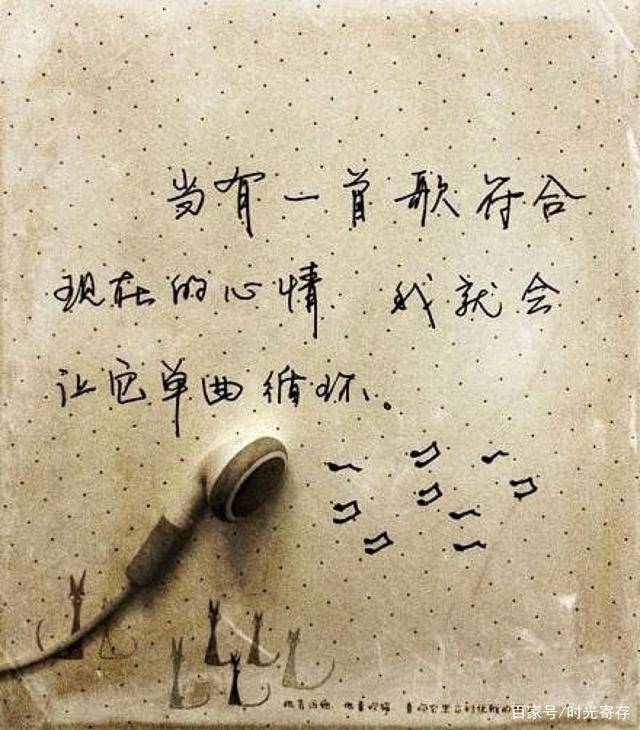 当有一首歌符合
现在的心情 我就会
让它单曲循环。
百家号/时光寄存